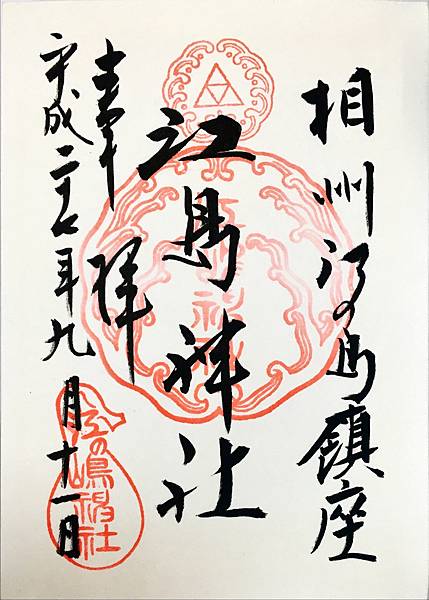 相州江の島鎮座
江島神社
奉拝
平成二十七年九月十一日
江の嶋神社